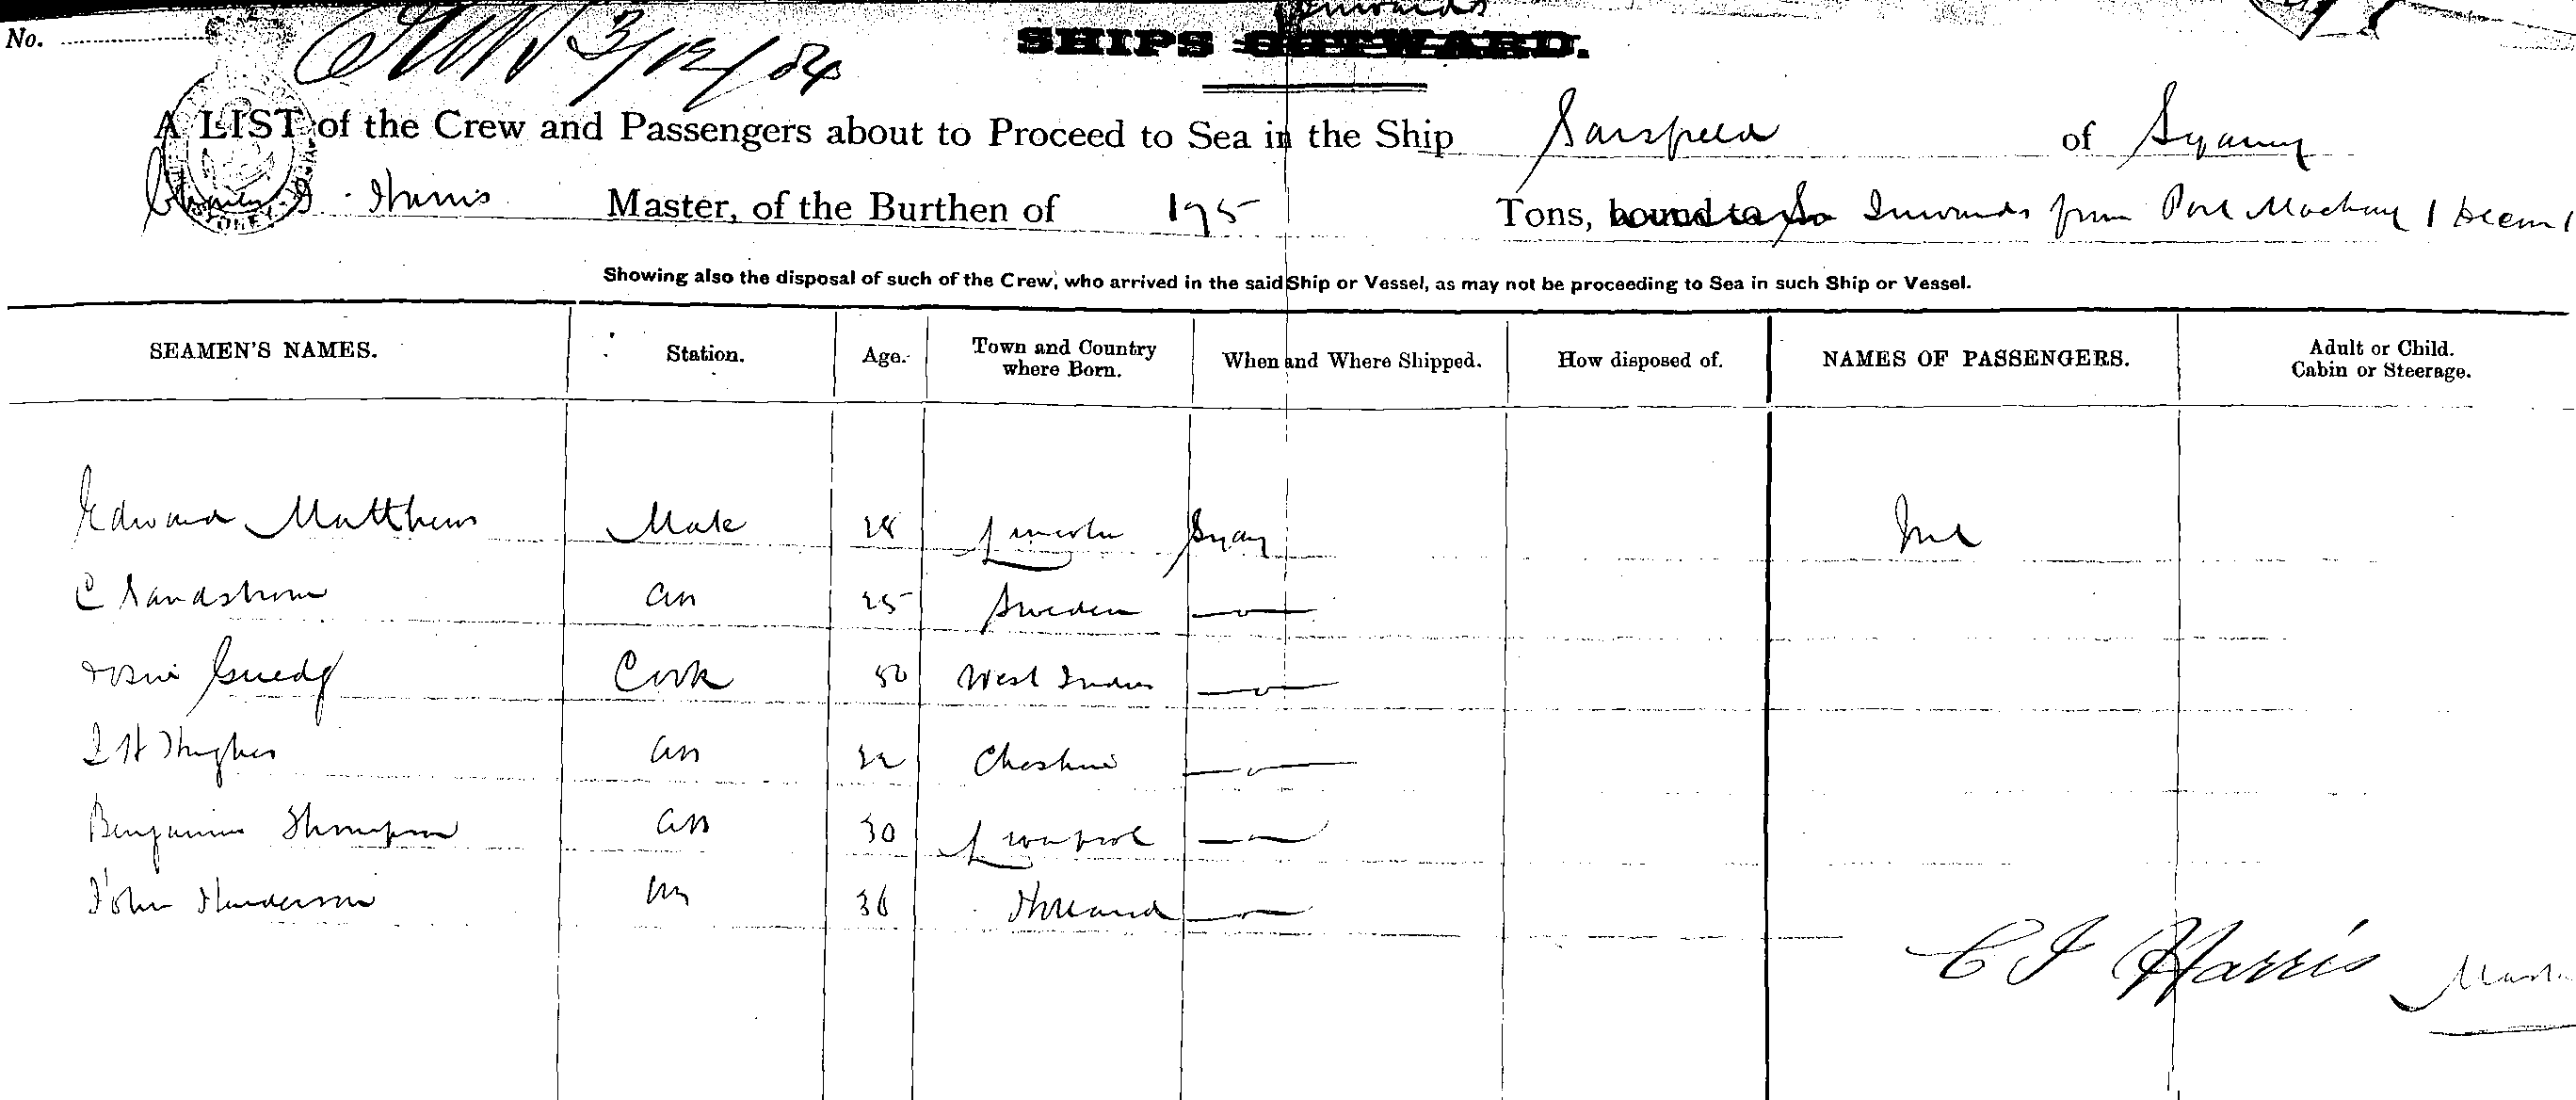 Inwards
No.
3/12/84
SHIPS OUTWARD.
A LIST of the Crew and Passengers about to Proceed to Sea in the Ship Sarsfield of Sydney
Charles J. Harris Master, of the Burthen of 195 Tons, bound to Inwards from Port Mackay
Showing also the disposal of such of the Crew, who arrived in the said Ship or Vessel, as may not be proceeding to Sea in such Ship or Vessel.
SEAMEN'S NAMES. Station. Age. Town and Country where Born. When and Where Shipped. How disposed of. NAMES OF PASSENGERS. Adult or Child. Cabin or Steerage.
Edward Matthews Mate 28 Lincoln Sydney Nil
C Sandstrom AB 25 Sweden
Cook 50 West Indies
Hughes AB 22 Cheshire
Benjamin Thompson AB 30 Liverpool
John Henderson 36 Holland
C J Harris Master